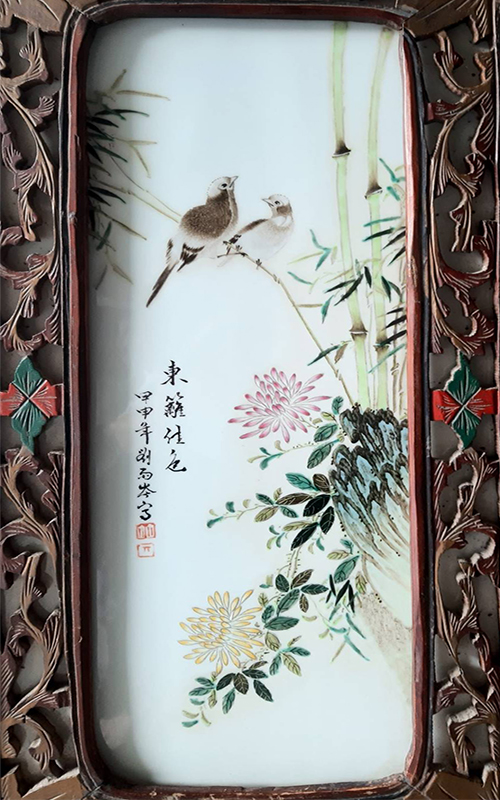 東籬佳色
甲申年劉雨岑寫